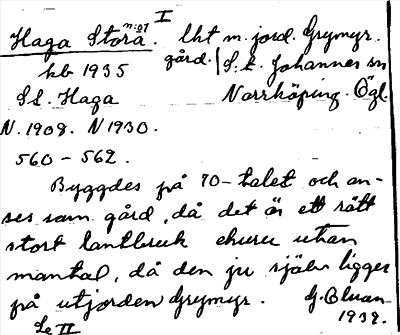 I
Haga Stora n:o1. lht m. jord. Grymyr.
gård. S:t Johannes sn
kb 1935
St. Haga Norrköping. Ögl.
N. 1909. N 1930.
560-562.
Byggdes på 70-talet och an-
ses som gård, då det är ett rätt
stort lantbruk ehuru utan
mantal, då den ju själv ligger
på utjorden Grymyr. G. Bluan-
1938.
Se II